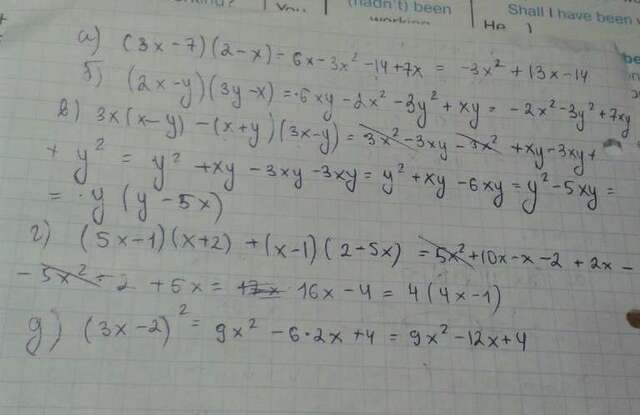 (hadn't) been
Shall I have been
а) (3x-7)(2-x) = 6x-3x²-14+7x = -3x²+13x-14
б) (2x-y)(3y-x) = 6xy-2x²-3y²+xy = -2x²-3y²+7xy
в) 3x(x-y) -(x+y)(3x-y) = 3x²-3xy-3x²+xy-3xy+
+ y² = y² +xy -3xy-3xy = y²+xy-6xy = y²-5xy =
= y (y-5x)
г) (5x-1)(x+2) +(x-1)(2-5x) = 5x²+10x-x-2+2x-
-5x²-2 +5x = 16x-4 = 4(4x-1)
д) (3x-2)² = 9x²-6·2x+4 = 9x²-12x+4